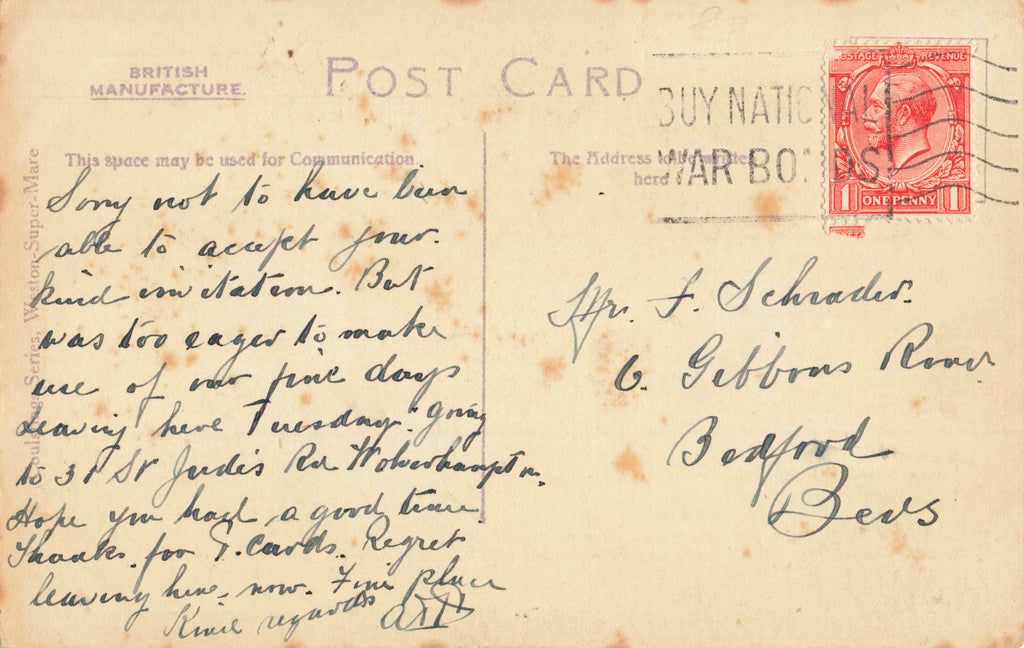 BRITISH
MANUFACTURE.
POST CARD
BUY NATIONAL
WAR BONDS
POSTAGE REVENUE
1 ONE PENNY 1
This space may be used for Communication.
The Address to be written
here
Series, Weston-Super-Mare
Sorry not to have been
able to accept your
kind invitation. But
was too eager to make
use of our fine days
Leaving here Tuesday. Going
to 31 St Jude's Rd Wolverhampton.
Hope you had a good time
Thanks for P. Cards. Regret
leaving here now. Fine place
Kind regards
Mr. F. Schrader.
6. Gibbons Road
Bedford
Beds